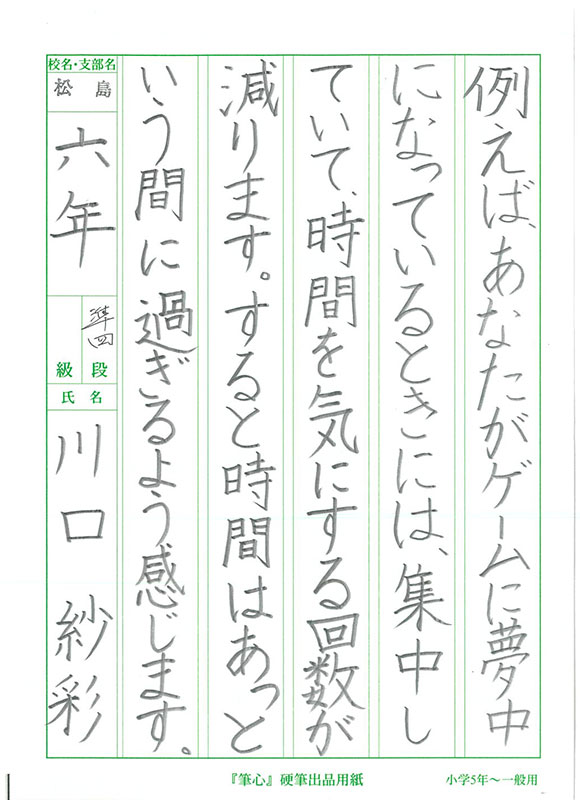 例えば、あなたがゲームに夢中
になっているときには、集中し
ていて、時間を気にする回数が
減ります。すると時間はあっと
いう間に過ぎるよう感じます。
校名・支部名
松島
六年
準四
段
級
氏名
川口紗彩
『筆心』硬筆出品用紙
小学5年～一般用